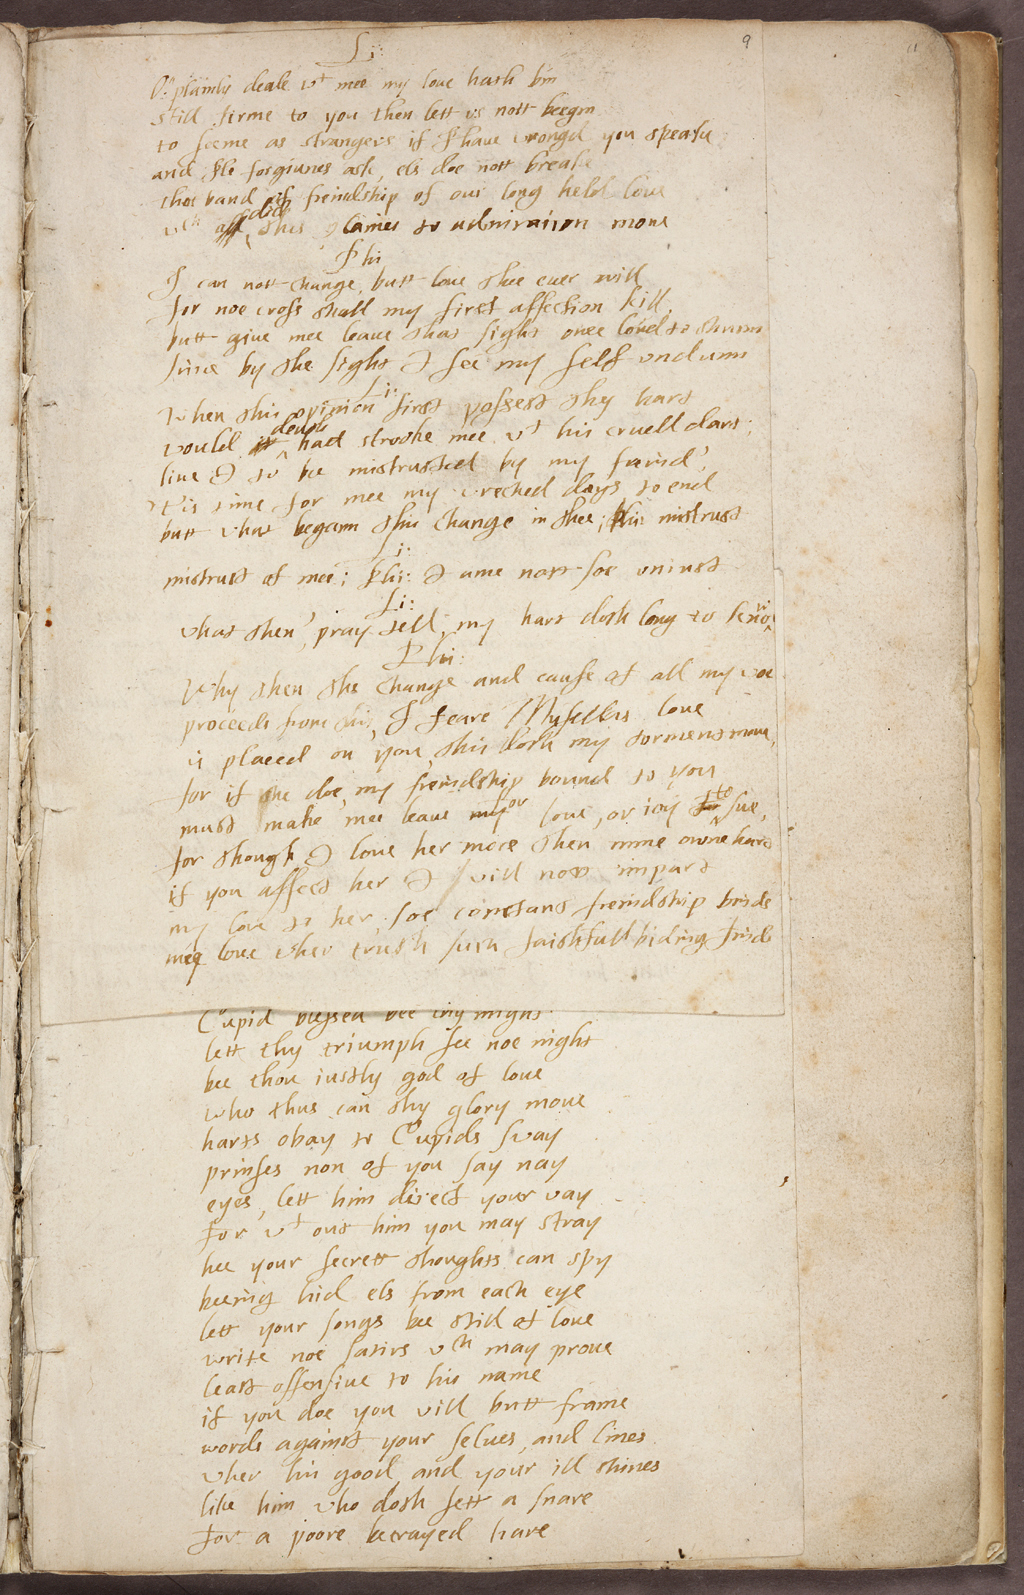 9
Li:
O: plainly deale wt mee my love hath bin
still firme to you then lett us nott beegin
to seeme as strangers if I have wrongd you speake
and Ile forgivnes ask, els doe nott breake
that band of freindship of our long held love
wch did thes plaines to admiration move
Phi
I can nott change, butt love thee ever will
for noe cross shall my first affection kill
butt give mee leave that sight once lov'd to shunn
since by the sight I see my self undunn
Li:
When this opinion first possest thy hart
would death had strooke mee wt his cruell dart,
live I to bee mistrusted by my freind,
t'is time for mee my wreched days to end
butt what begann this change in thee; Phi: mistrust
Li:
mistrust of mee; Phi: I ame nott soe uniust
Li:
what then, pray tell, my hart doth long to know
Phi:
Why then the change and cause of all my woe
proceeds from this, I feare Musellas love
is placed on you, this doth my torments move,
for if she doe, my freindship bound to you
must make mee leave or love, or ioy to sue,
for though I love her more then mine owne hart
if you affect her I will nott impart
my love to her, soe constant freindship binds
mee love wher truth such faithfull biding finds
Cupid blessed bee thy might
lett thy triumph see noe night
bee thou iustly god of love
who thus can thy glory move
harts obay to Cupids sway
prinses non of you say nay
eyes, lett him direct your way
for wt out him you may stray
hee your secrett thoughts can spy
beeing hid els from each eye
lett your songs bee still of love
write noe satirs wch may prove
least offensive to his name
if you doe you will butt frame
words against your selves, and lines
wher his good, and your ill shines
like him who doth sett a snare
for a poore betrayed hare